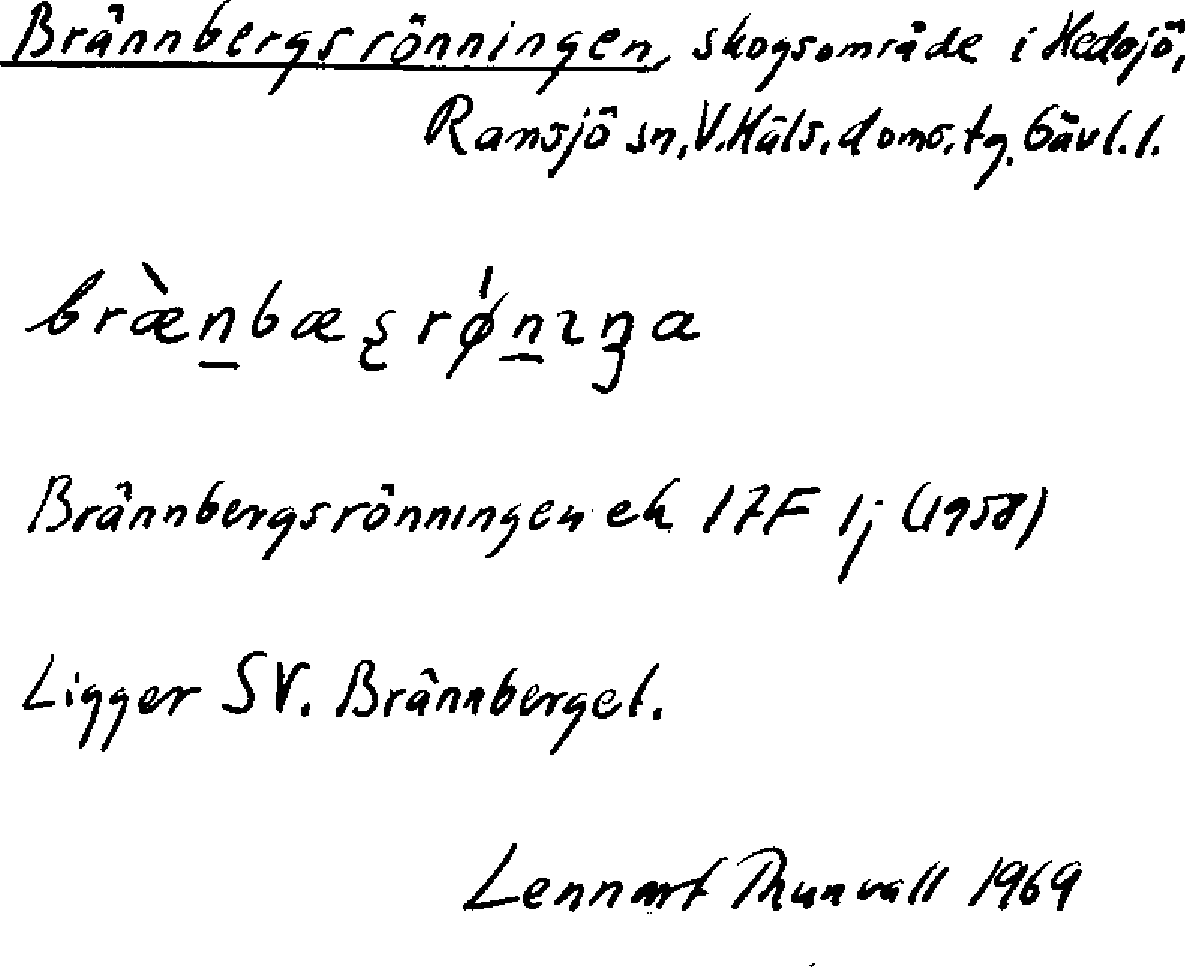 Brännbergsrönningen, skogsområde i Hedsjö,
Ramsjö sn, V. Häls. doms. tg. Gävl. l.
bræ̀n̠bæʂrǿn̠ɪŋa
Brännbergsrönningen ek 17F 1j (1958)
Ligger SV. Brännberget.
Lennart Thunvall 1969